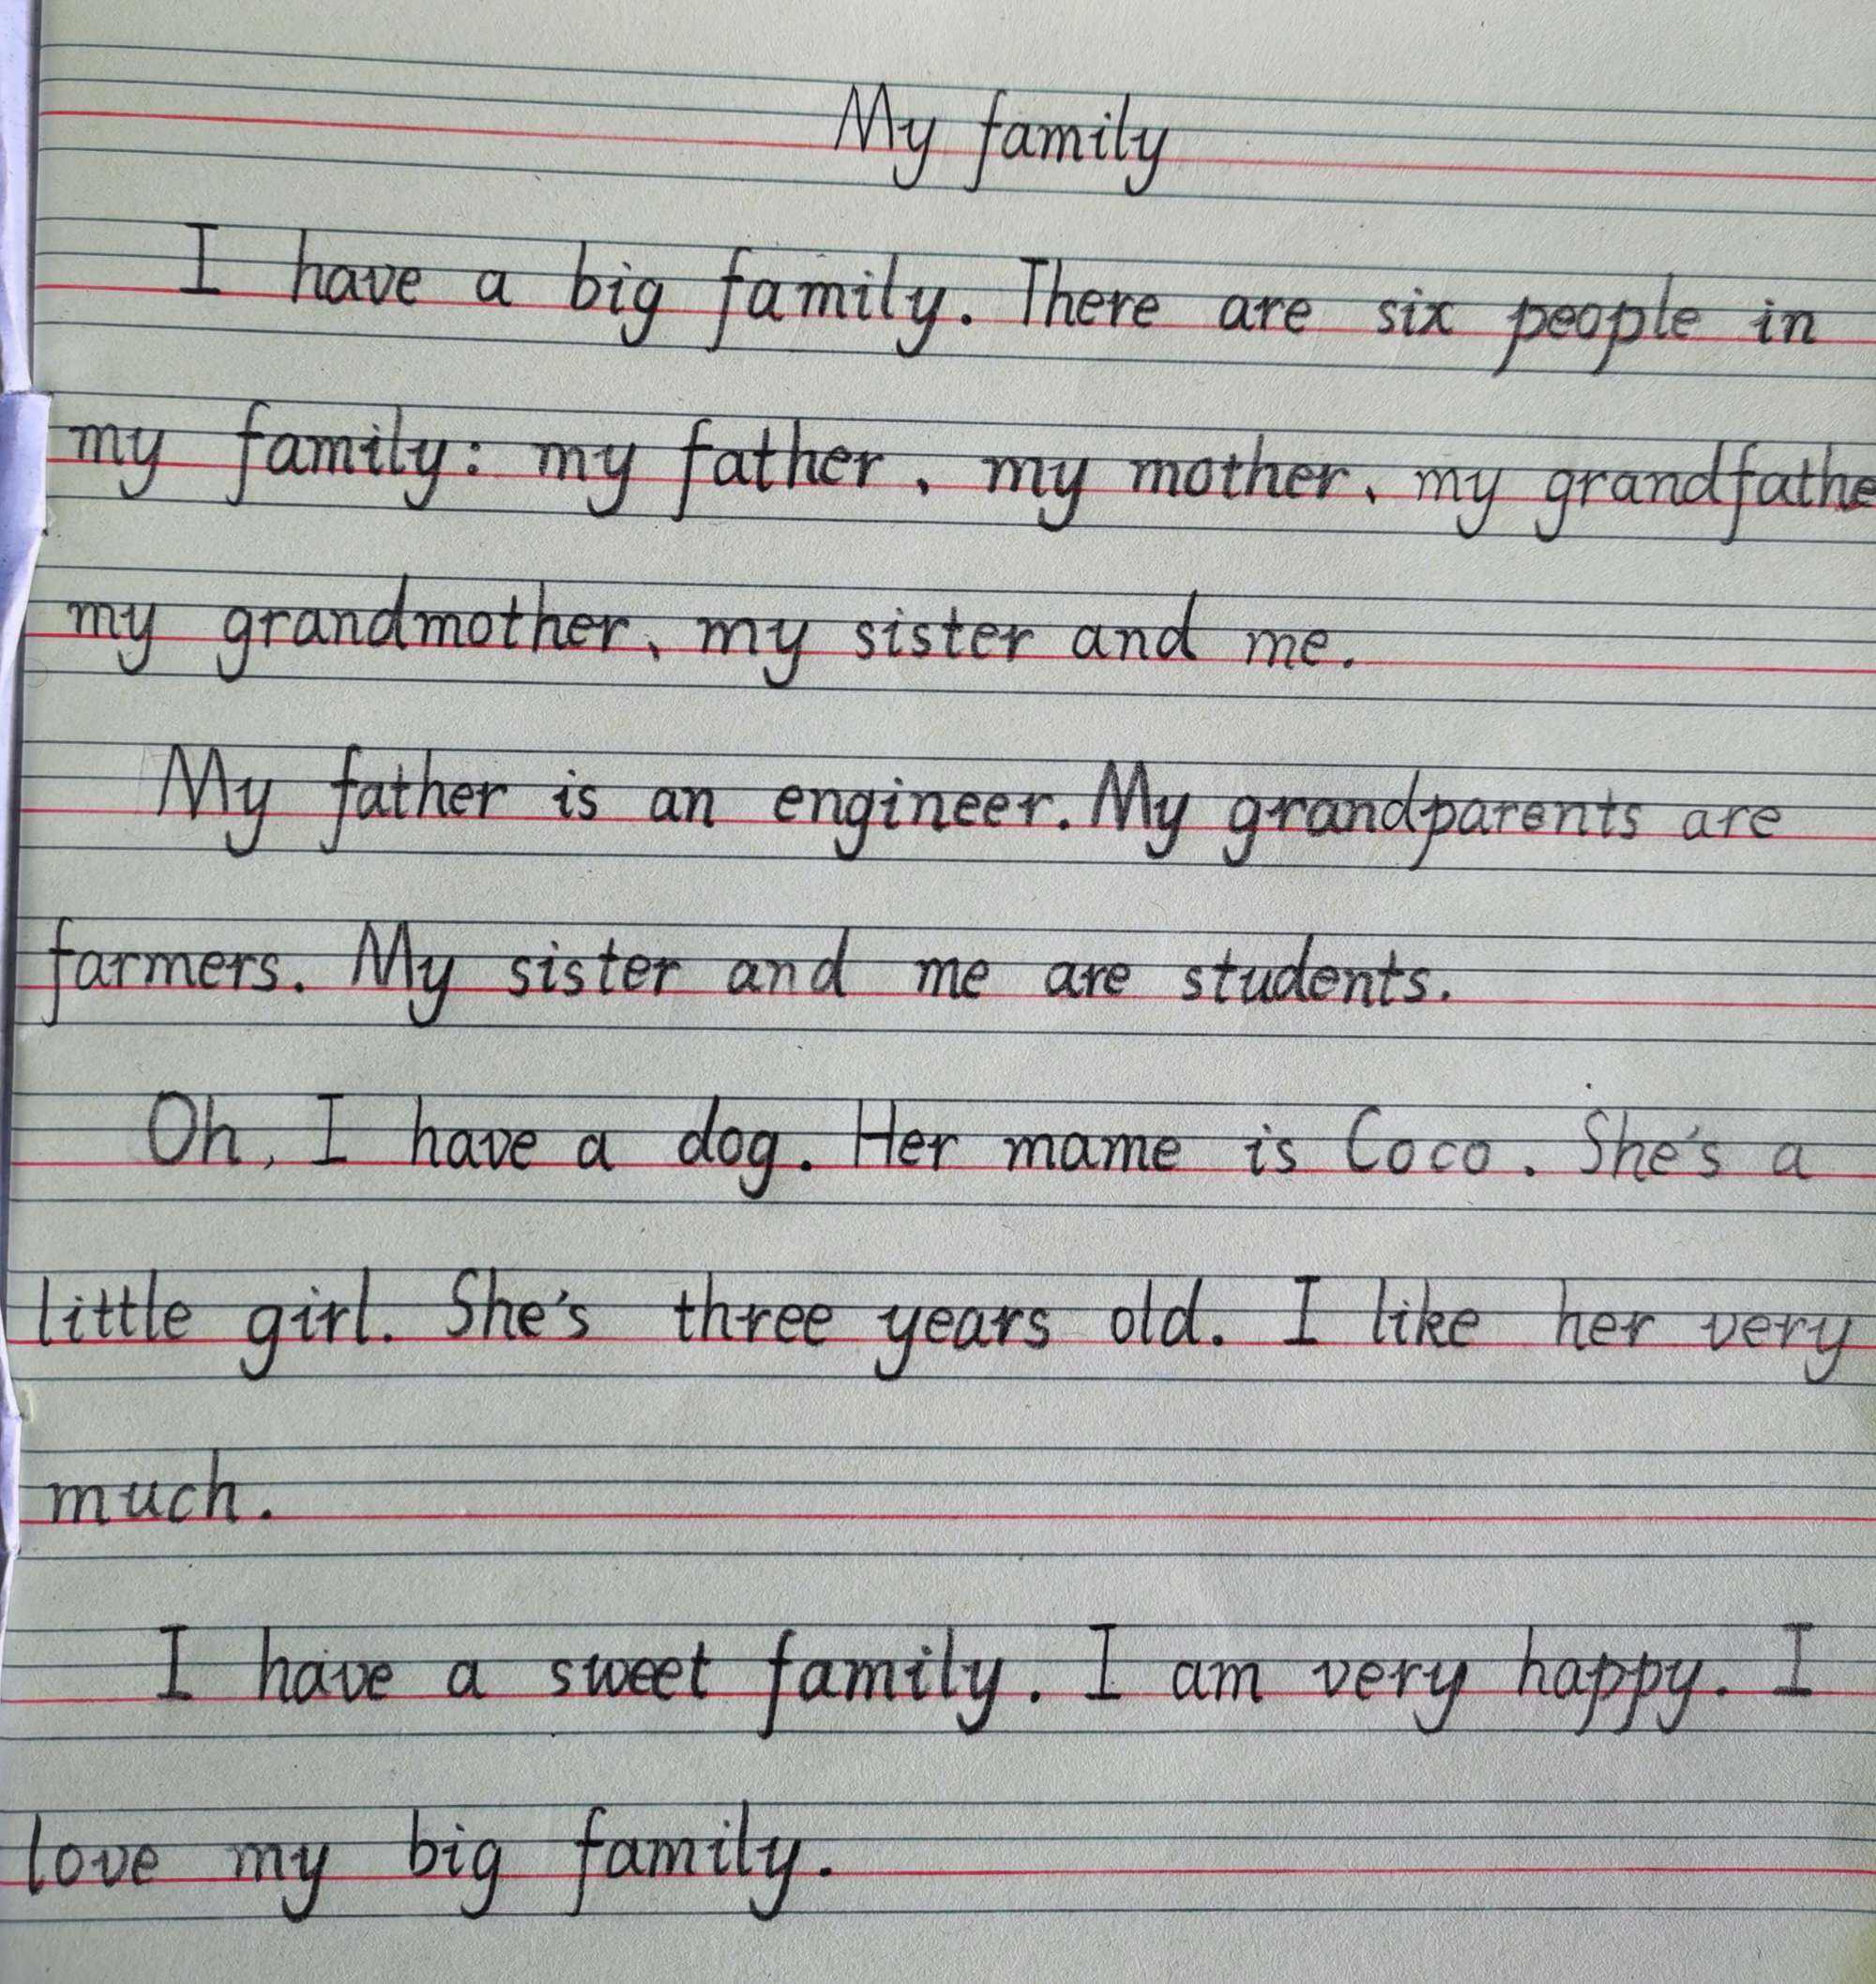 My family
I have a big family. There are six people in
my family: my father、my mother、my grandfathe
my grandmother、my sister and me.
My father is an engineer. My grandparents are
farmers. My sister and me are students.
Oh, I have a dog. Her mame is Coco. She's a
little girl. She's three years old. I like her very
much.
I have a sweet family. I am very happy. I
love my big family.